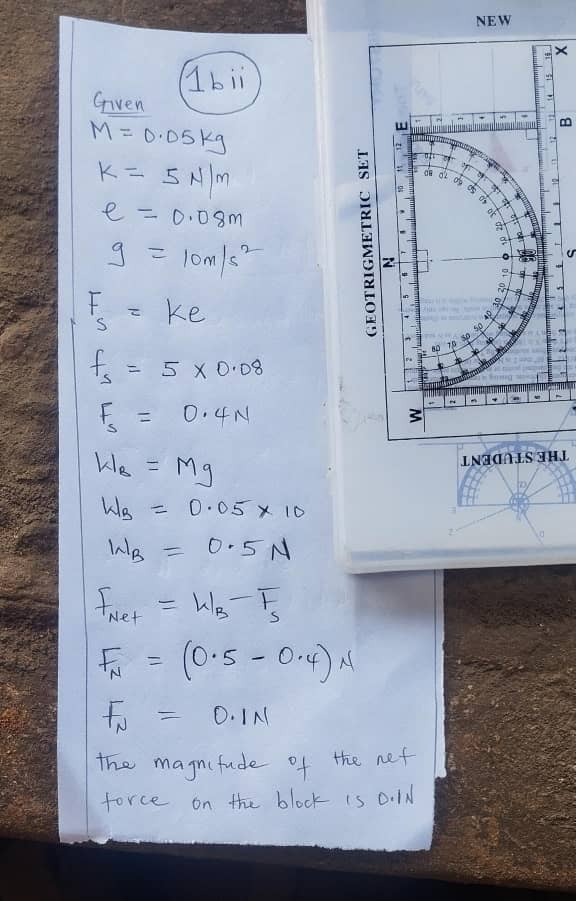 1bii
Given
M = 0.05kg
K = 5 N/m
e = 0.08m
g = 10m/s²
Fs = ke
fs = 5 x 0.08
Fs = 0.4N
WB = Mg
WB = 0.05 x 10
WB = 0.5 N
fNet = WB - Fs
FN = (0.5 - 0.4) N
FN = 0.1N
the magnitude of the net
force on the block is 0.1N
NEW
GEOTRIGMETRIC SET
THE STUDENT
W
N
E
S
B
X